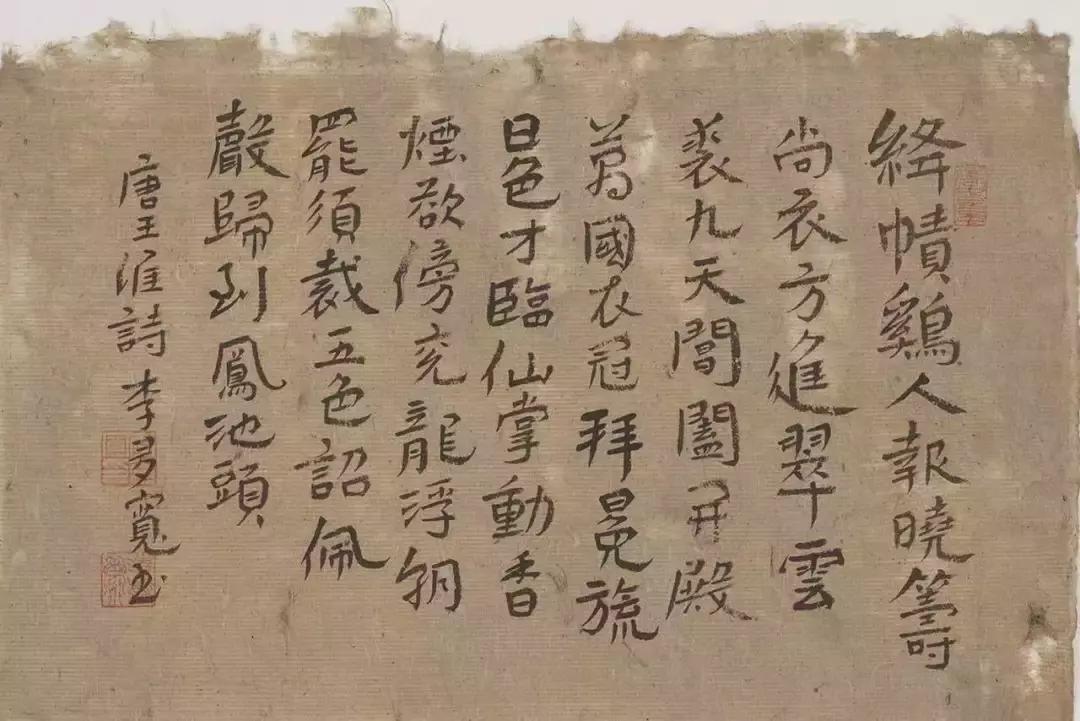 絳幘鷄人報曉籌
尚衣方進翠雲
裘九天閶闔開殿
萬國衣冠拜冕旒
日色才臨仙掌動香
煙欲傍兗龍浮朝
罷須裁五色詔佩
聲歸到鳳池頭
唐王維詩 李寬书